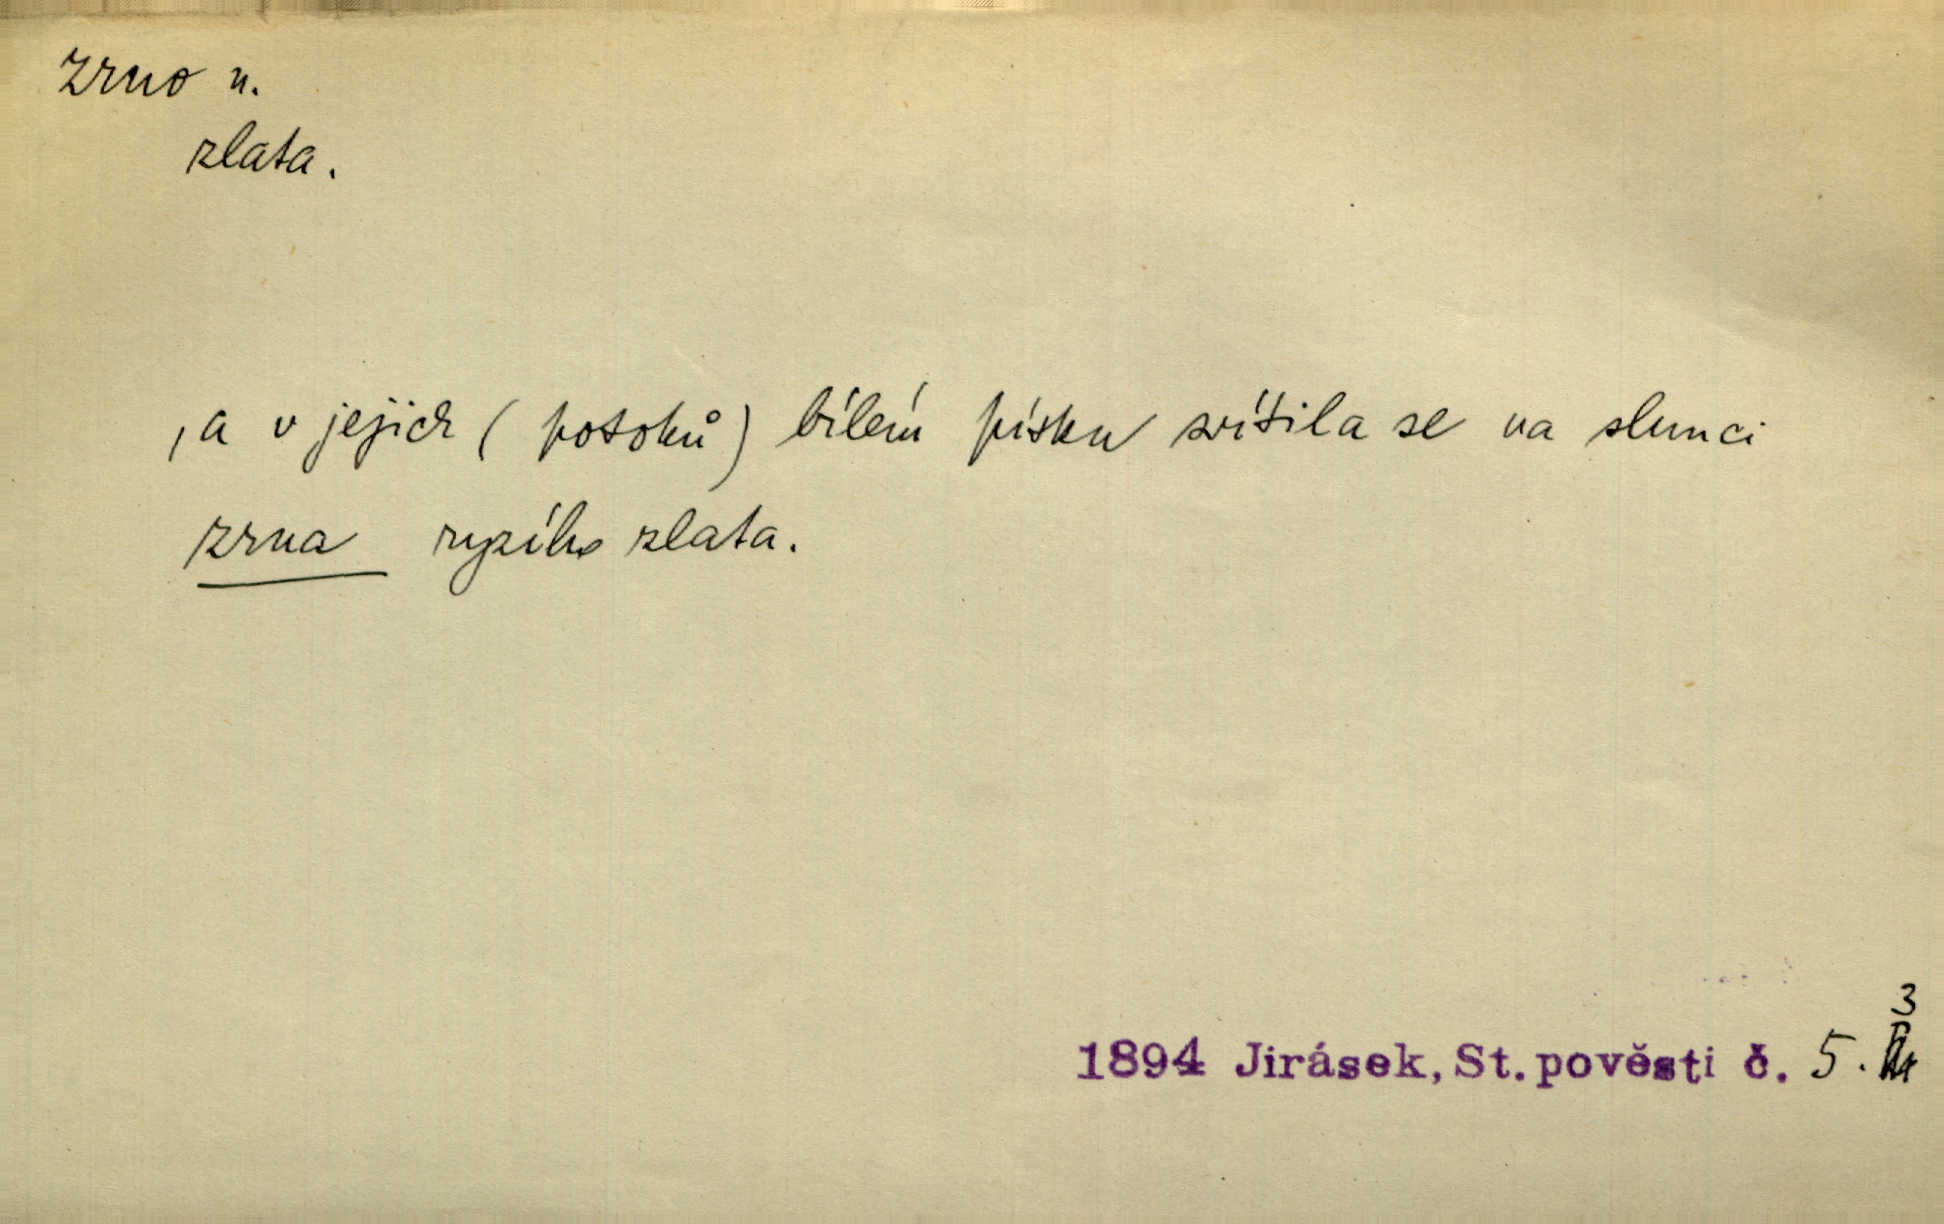 zrno n.
zlata.
, a v jejich (potoků) bílém písku svítila se na slunci
zrna ryzího zlata.
3
1894 Jirásek, St. pověsti č. 5.